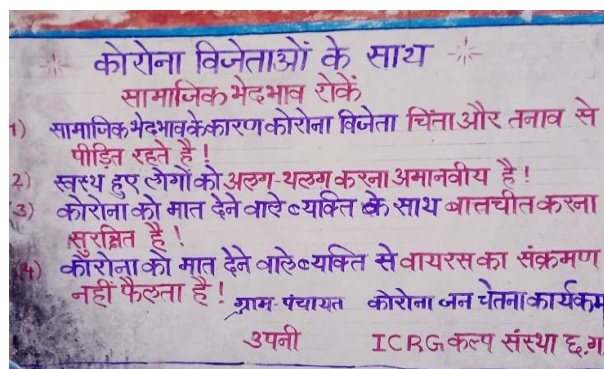 कोरोना विजेताओं के साथ
सामाजिक भेदभाव रोकें
1) सामाजिक भेदभाव के कारण कोरोना विजेता चिंता और तनाव से
पीड़ित रहते है!
2) स्वस्थ हुए लोगों को अलग-थलग करना अमानवीय है!
3) कोरोना को मात देने वाले व्यक्ति के साथ बातचीत करना
सुरक्षित है!
4) कोरोना को मात देने वाले व्यक्ति से वायरस का संक्रमण
नहीं फैलता है! ग्राम-पंचायत कोरोना जन चेतना कार्यकम
उपनी ICRG कल्प संस्था छ.ग